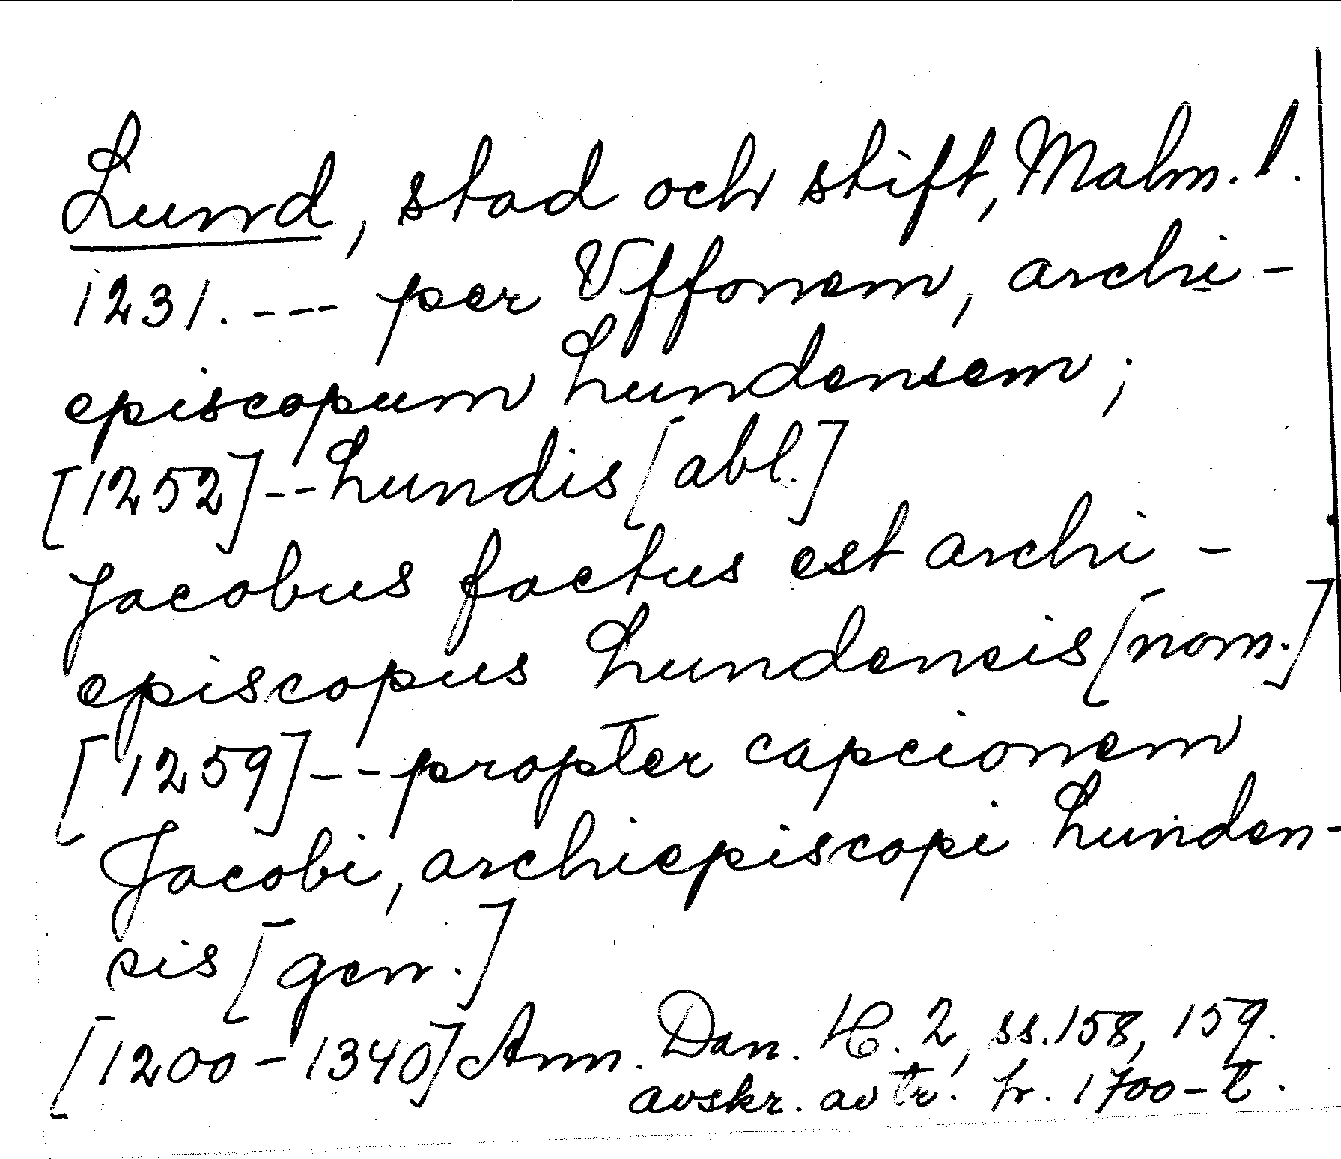 Lund, stad och stift, Malm. l.
1231. --- per Vffonem, archi-
episcopum Lundensem;
[1252] -- Lundis [abl.]
Jacobus factus est archi-
episcopus Lundensis [nom.]
[1259] -- propter capcionem
Jacobi, archiepiscopi Lunden-
sis [gen.]
[1200-1340] Ann. Dan. H. 2, ss. 158, 159.
avskr. av tr. fr. 1700-t.